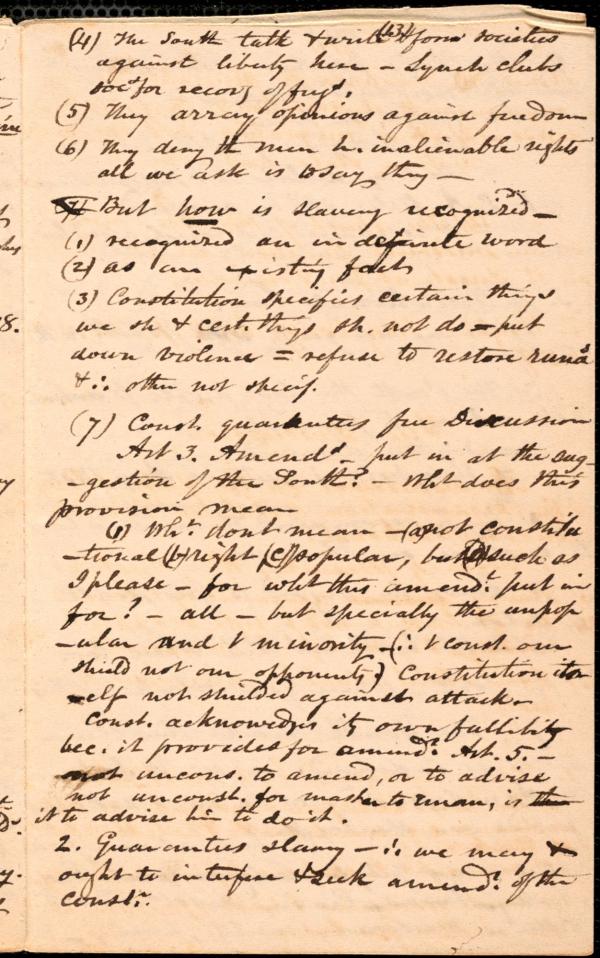 (3)
(4) The South talk & write & form societies
against liberty here – Lynch clubs
soc.s for recov.g of fug.s.
(5) They array opinions against freedom
(6) They deny th men h. inalienable rights
all we ask is to say they —
But how is slavery recognized —
(1) recognized an indefinite word
(2) as an existing fact
(3) Constitution specifies certain things
we sh & cert. thgs sh. not do = put
down violence = refuse to restore runa.s
& ∴ other not specif.
(7) Const. guarantees free Discussion
Art 3. Amend.d – put in at the sug-
-gestion of the South? – Wht does this
provision mean
(1) Wh.t dont mean – (a) not constitu
-tional (b) right (c) popular, but (d) such as
I please – for wht this amend.t put in
for? – all – but specially the unpop
-ular and t minority – (∴ t const. our
shield not our opponents) Constitution its
-elf not shielded against attack –
Const. acknowedges its own fallibility
bec. it provides for amend.t Art. 5. –
not uncons. to amend, or to advise
not unconst. for master to eman, is
it to advise him to do it.
2. Guarantees slavery – ∴ we may &
ought to interfere & seek amend.t of the
const.n.